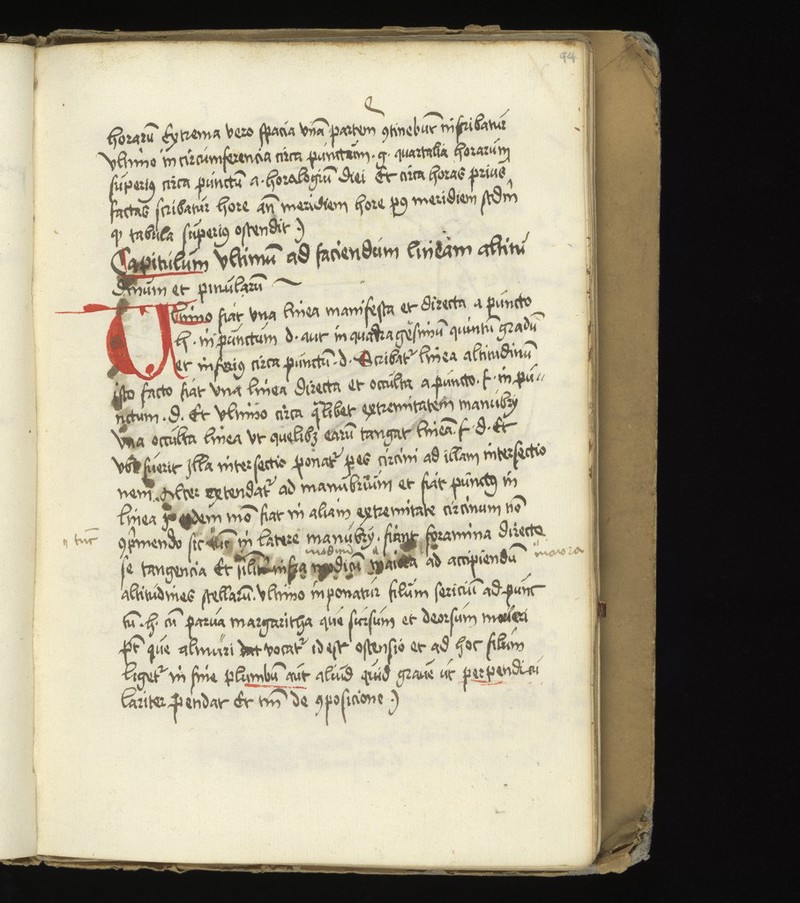 94
horarū Extrema vero spacia vnā partem ꝯtinebūt inscribatur
vltimo in circumferencia circa punctum · g · quartalia horarum
superiꝰ circa punctū a · horologiū diei Et circa horas prius
factas scribatur hore an̄ meridiem hore pꝰ meridiem scdm̄
ꝙ tabula superiꝰ ostendit
Capitulum vltimū ad faciendum lineam altitu
dinum et pinularū
Vltimo fiat vna linea manifesta et directa a puncto
h · in punctum d · aut in quadragesimū quintū gradū
et inferiꝰ circa punctū · d · scribat᷑ linea altitudinū
isto facto fiat vna linea directa et occulta a puncto · f · in pu
nctum · d · Et vltimo circa q̄libet extremitatem manubrȳ
vna occulta linea vt quelibꝫ earū tangat lineā · f · d · Et
vbi fuerit illa intersectio ponat᷑ pes circini ad illam intersectio
nem Alter extendat᷑ ad manubrium et fiat punctꝰ in
linea eodem mō fiat in aliam extremitate circinum nō
" tūc
ꝯprimendo sic in latere manubrȳ · fiant foramina directe
modicū
se tangencia Et infra modicū ad accipiendū
" maiora
altitudines stellarū · vltimo inponatur filum sericiū ad punc
tū · h · cū parua margaritha que sursum et deorsum moueri
pt̄ que almuri vocat᷑ id est ostensio et ad hoc filum
liget᷑ in fine plumbū aut aliud quid graue ut perpendicu
lariter pendat Et tm̄ de ꝯposicione